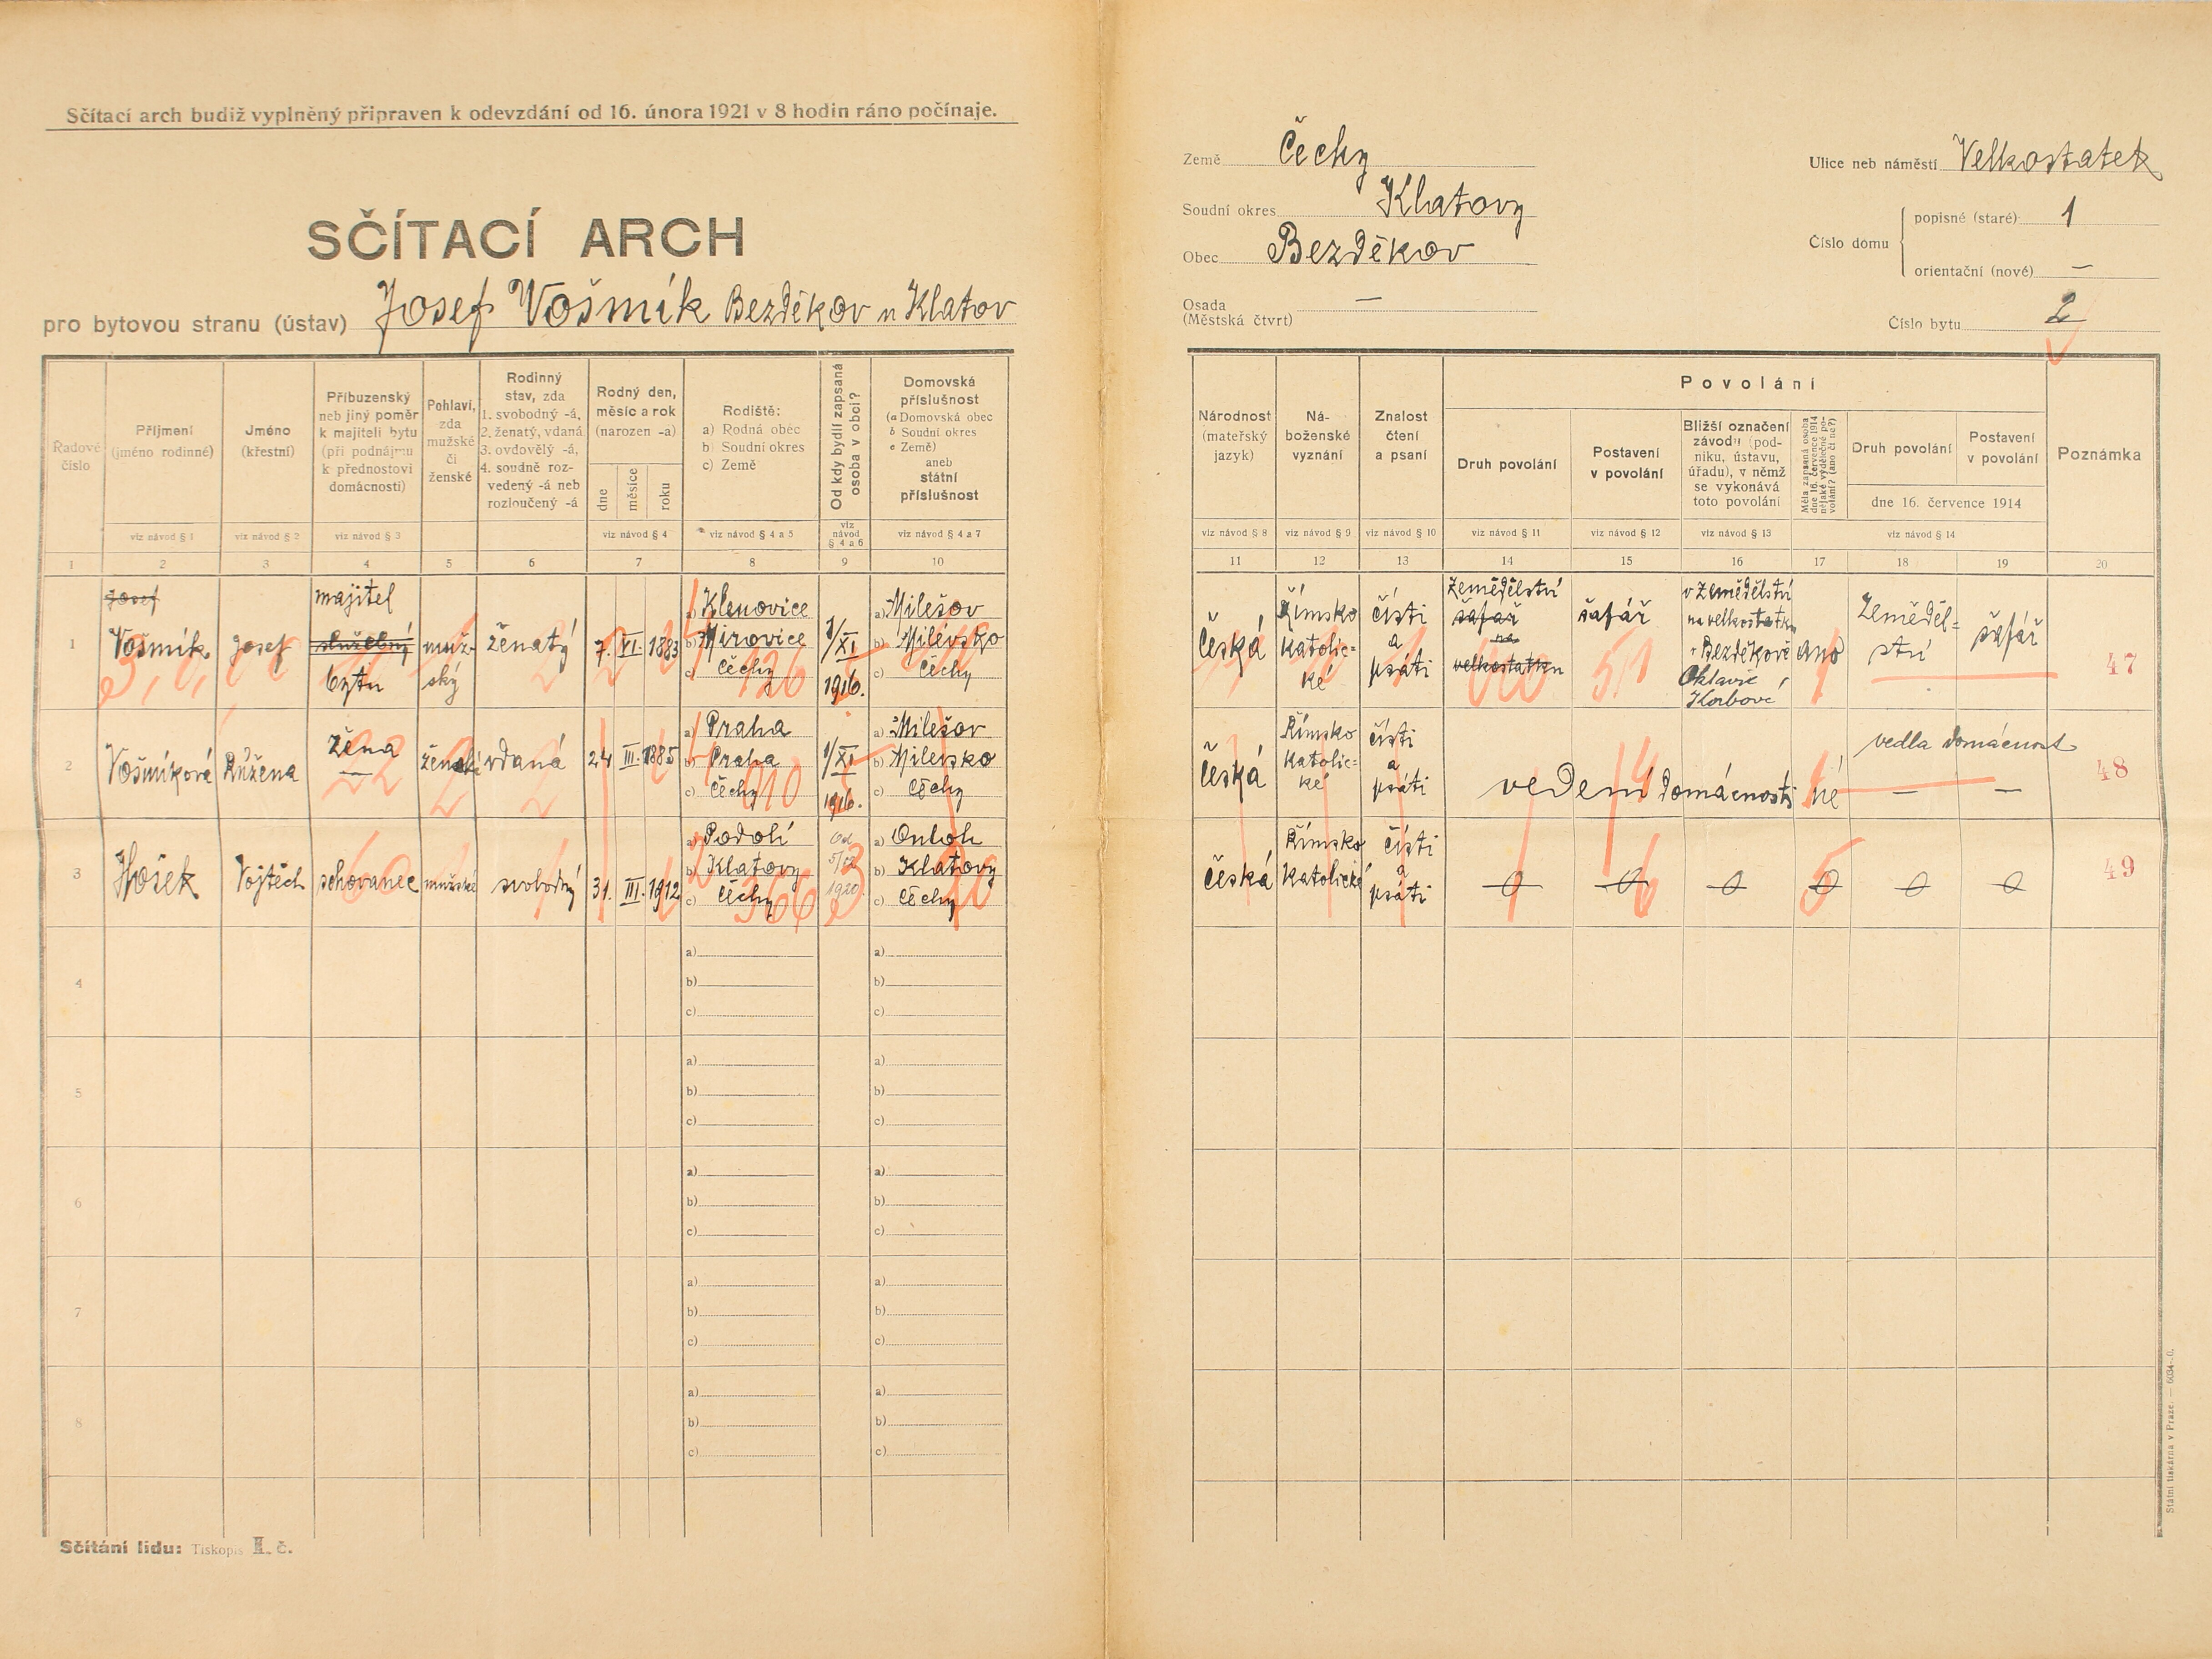 Sčítací arch budiž vyplněný připraven k odevzdání od 16. února 1921 v 8 hodin ráno počínaje.
SČÍTACÍ ARCH
pro bytovou stranu (ústav) Josef Vošmík Bezděkov u Klatov
Země Čechy
Soudní okres Klatovy
Obec Bezděkov
Osada —
(Městská čtvrt)
Ulice neb náměstí Velkostatek
Číslo domu
popisné (staré) 1
orientační (nové) —
Číslo bytu 2
Řadové číslo
Příjmení (jméno rodinné)
Jméno (křestní)
Příbuzenský neb jiný poměr k majiteli bytu (při podnájmu k přednostovi domácnosti)
Pohlaví, zda mužské či ženské
Rodinný stav, zda 1. svobodný -á, 2. ženatý, vdaná 3. ovdovělý -á, 4. soudně rozvedený -á neb rozloučený -á
Rodný den, měsíc a rok (narozen -a)
dne měsíce roku
Rodiště: a) Rodná obec b) Soudní okres c) Země
Od kdy bydlí zapsaná osoba v obci?
Domovská příslušnost (a Domovská obec b Soudní okres c Země) aneb státní příslušnost
Národnost (mateřský jazyk)
Náboženské vyznání
Znalost čtení a psaní
Povolání
Druh povolání
Postavení v povolání
Bližší označení závodu (podniku, ústavu, úřadu), v němž se vykonává toto povolání
Měla zapsaná osoba dne 16. července 1914 nějaké výdělečné povolání? (ano či ne?)
Druh povolání
Postavení v povolání
dne 16. července 1914
Poznámka
viz návod § 1 viz návod § 2 viz návod § 3 viz návod § 4 viz návod § 4 a 5 viz návod § 4 a 6 viz návod § 4 a 7
viz návod § 8 viz návod § 9 viz návod § 10 viz návod § 11 viz návod § 12 viz návod § 13 viz návod § 14
1 2 3 4 5 6 7 8 9 10
11 12 13 14 15 16 17 18 19 20
1 Josef Vošmík Josef majitel služebný bytu mužský ženatý 7. VI. 1883
a) Klenovice
b) Mirovice
c) Čechy
1/XI 1916.
a) Milešov
b) Milevsko
c) Čechy
česká římsko katolické čísti a psáti
Zemědělství šafař na velkostatku
šafář
v Zemědělství na velkostatku v Bezděkově
Korbové
ano Zemědělství šafář 47
2 Vošmíková Růžena žena — ženské vdaná 24 III. 1885
a) Praha
b) Praha
c) Čechy
1/XI 1916.
a) Milešov
b) Milevsko
c) Čechy
česká Římsko katolické čísti a psáti
vedení domácnosti né
vedla domácnost
— —
48
3 Hošek Vojtěch schovanec mužské svobodný 31. III. 1912
a) Podolí
b) Klatovy
c) Čechy
Od 5/12 1920.
a)
b) Klatovy
c) Čechy
česká Římsko katolické čísti a psáti
0 0 0 0 0 0
49
4
a)
b)
c)
a)
b)
c)
5
a)
b)
c)
a)
b)
c)
6
a)
b)
c)
a)
b)
c)
7
a)
b)
c)
a)
b)
c)
8
a)
b)
c)
a)
b)
c)
Sčítání lidu: Tiskopis II. č.
Státní tiskárna v Praze. — 6034-0.